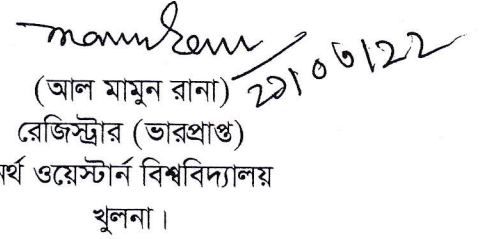 (আল মামুন রানা)
রেজিস্ট্রার (ভারপ্রাপ্ত)
র্থ ওয়েস্টার্ন বিশ্ববিদ্যালয়
খুলনা।